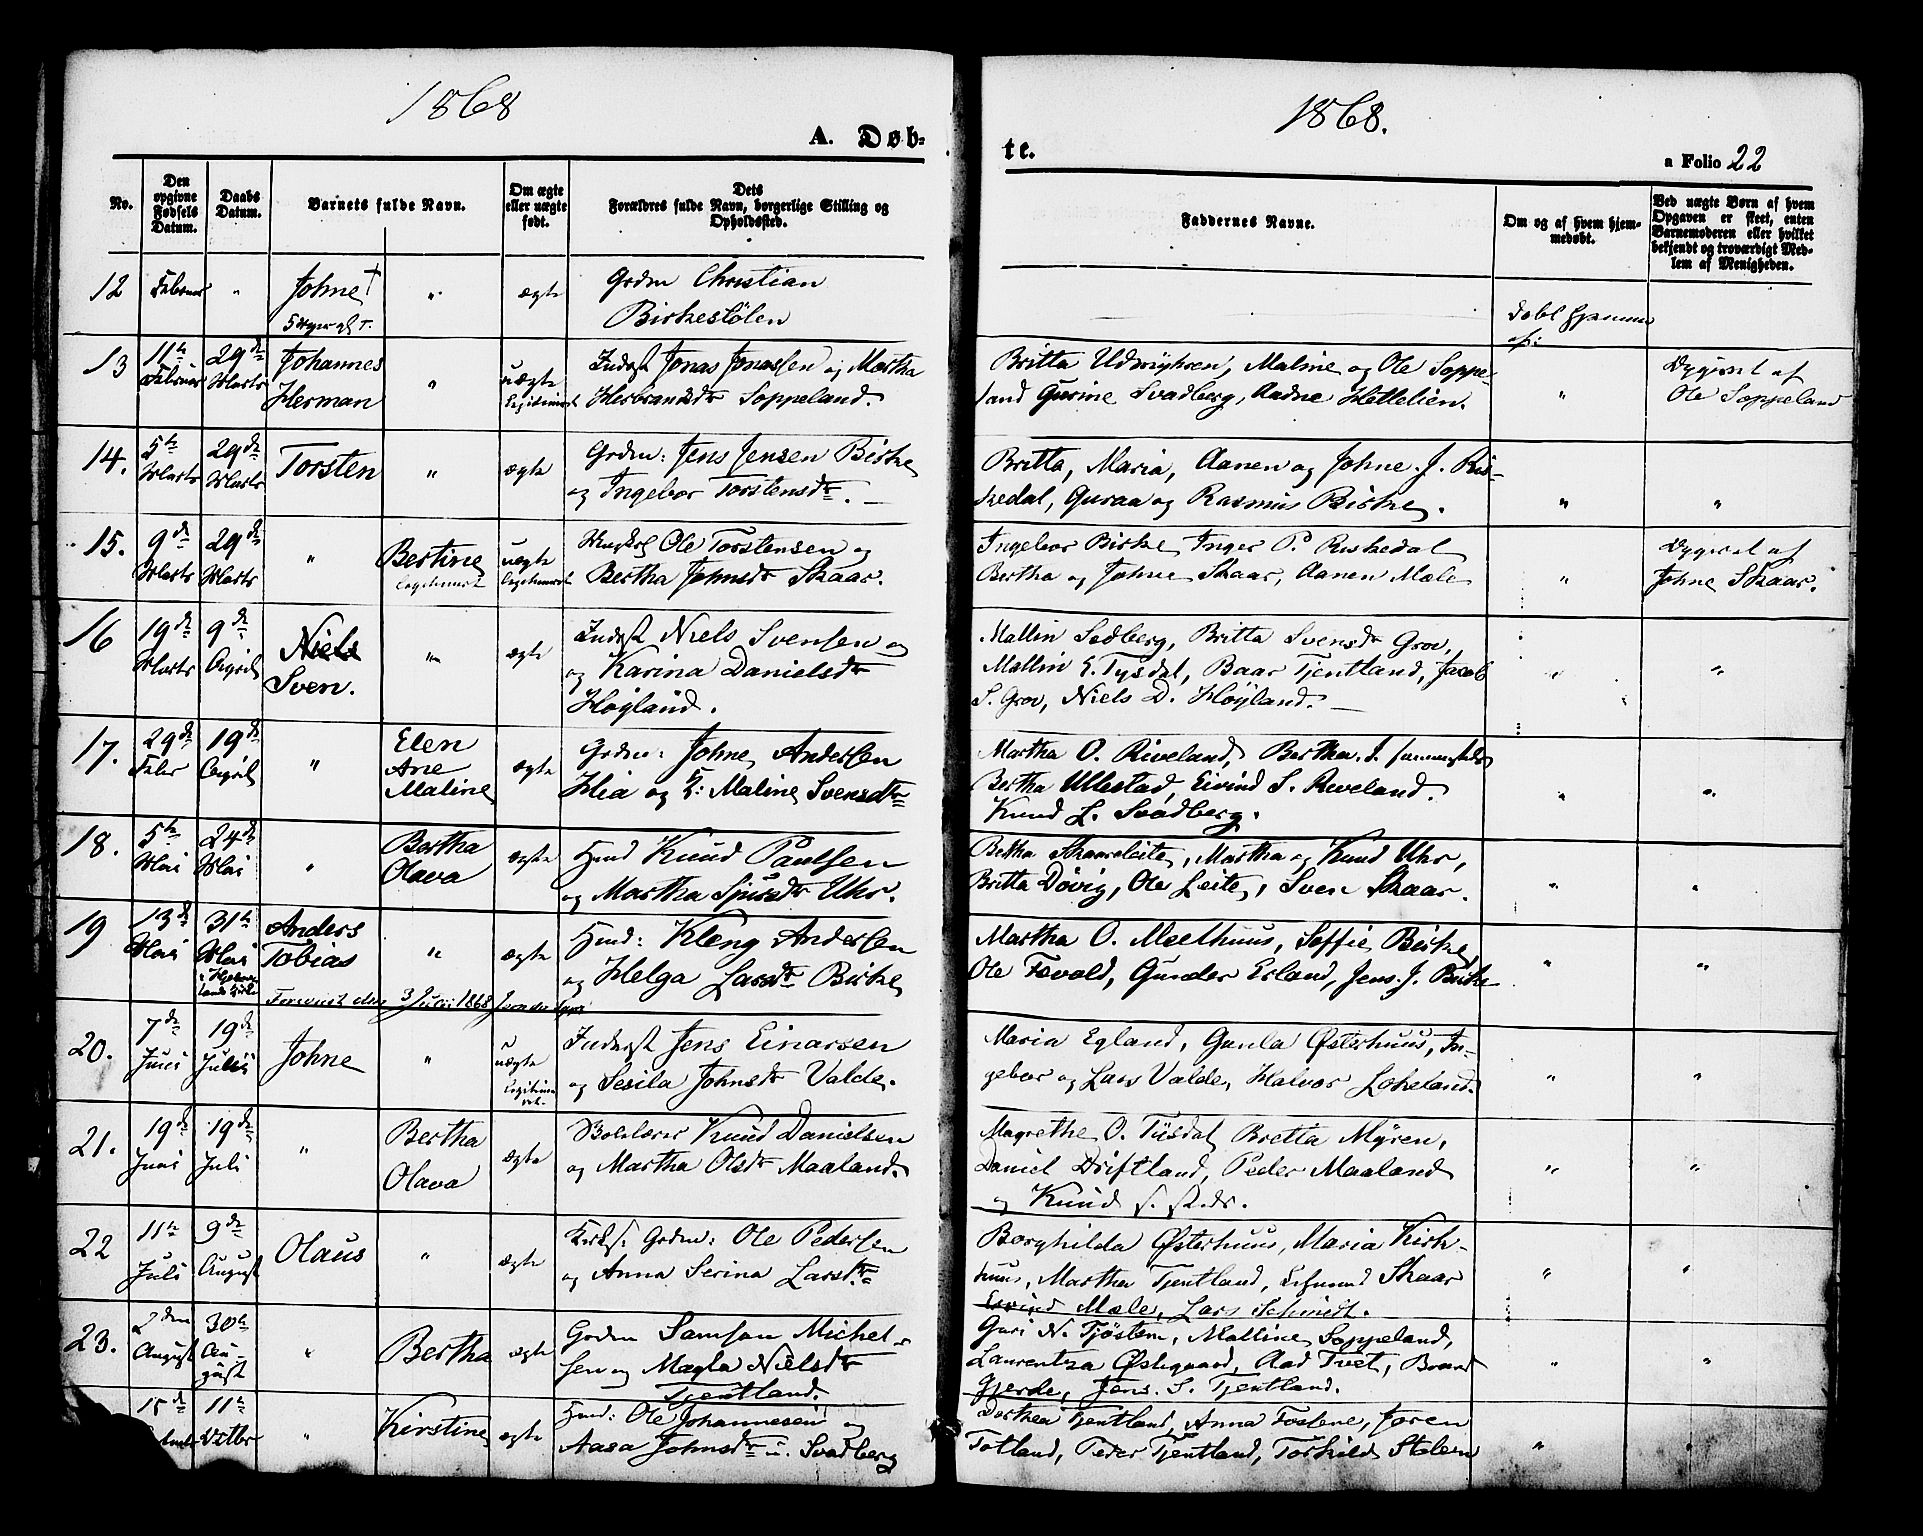 1868
A. Døb-
No.
Den opgivne Fødsels Datum.
Daabs Datum.
Barnets fulde Navn.
Om ægte eller uægte født.
Dets Forældres fulde Navn, borgerlige Stilling og Opholdssted.
12 Februar " Johne † " ægte Grdm Christian
Birkestølen
13 11te Februar 29de Marts Johannes Herman " uægte Legitimert Inderst Jonas Jonassen og Martha
Herbrandsdtr Soppeland.
14. 5te Marts 29de Marts Torsten " ægte Grdm: Jens Jensen Birke
og Ingebor Torstensdtr. —
15. 9de Marts 29de Marts " Bertine legitimert uægte legitimert Ole Torstensen og
Bertha Johnsdtr Skaar.
16 19de Marts 9de April Niels Sven. " ægte Inderst Niels Svensen og
og Karina Danielsdtr
Høgland.
17. 29de Febr 19de April " Elen Ane Maline ægte Grdm: Johne Andersen
Hia og K: Maline Svensdtr
18. 5te Mai 24de Mai " Bertha Olava ægte Huusmd Knud Paulsen
og Martha Sjursdtr Uhr.
19 13de Mai 31te Mai Anders Tobias " ægte Huusmd: Kleng Andersen
og Helga Larsdtr Birke
3 Julii 1868
20. 7de Juni 19de Julii Johne " uægte Legitimeret. Inderst Jens Einarsen
og Sesila Johnsdtr Valde.
21. 19de Juni 19de Juli " Bertha Olava ægte Skolelærer Knud Danielsen
og Martha Olsdtr Maaland.
22 11te Juli 9de August Olaus " ægte Kirks: Grdm: Ole Pedersen
og Anna Serina Larsdtr
23. 2den August 30te August " Bertha ægte Grdm Samson Michel-
sen og Magla Nielsdtr
Tjentland.
15de 11te Octbr " Kirstine ægte Huusmd: Ole Johannesen og
Aasa Johnsdtr i Svadberg
1868.
te.
a Folio 22
Faddernes Navne.
Om og af hvem hjemmedøbt.
Ved uægte Børn af hvem Opgaven er skeet, enten Barnemoderen eller hvilket bekjendt og troværdigt Medlem af Menigheden.
Døbt hjemme
af:
Britta Maline og Ole Soppe-
land Gurine Svadberg, Aadne Hettelien. " Opgivet af
Ole Soppeland
Britta, Maria, Aanen og Johne J. Ris-
kedal, Guraa og Rasmus Birke. " "
Ingebor Birke Inger P. Riskedal
Bertha og Johne Skaar, Aanen Mæle " Opgivet af
Johne Skaar.
Mallin Sadberg, Britta Svensdtr Grov,
Mallin E. Tysdal, Baar Tjentland, Jacob
S. Grov, Niels D. Høyland. — " "
Martha O. Riveland, Bertha J.
Bertha Ullestad, Eivind S. Riveland.
Knud L. Svadberg. " "
Bertha Skaareleite, Martha og Knud Uhr,
Britta Døvig, Ole Leite, Sven Skaar. " "
Martha O. Meelhuus, Soffie Birke
Ole Fævold, Gunder Erland, Jens J. Birke " "
Maria Egland, Gunla Østerhuus, In-
gebor og Lars Valde, Halvor Lekeland. " "
Magrethe O. Tüsdal Bretta Myren,
Daniel Driftland, Peder Maaland
og Knud " "
Borghilda Østerhuus, Maria Kirk-
huus, Martha Tjentland, Skaar
Eivind Mæle, Lars Schmidt. " "
Guri N. Tjøstem, Malline Soppeland,
Laurentza Østegaard, Aad Tvet, Brand
Gjerde, Jens S. Tjentland. " "
Dorthea Tjentland, Anna Fostene, Joren
Totland, Peder Tjentland, Torkild Stølen " "